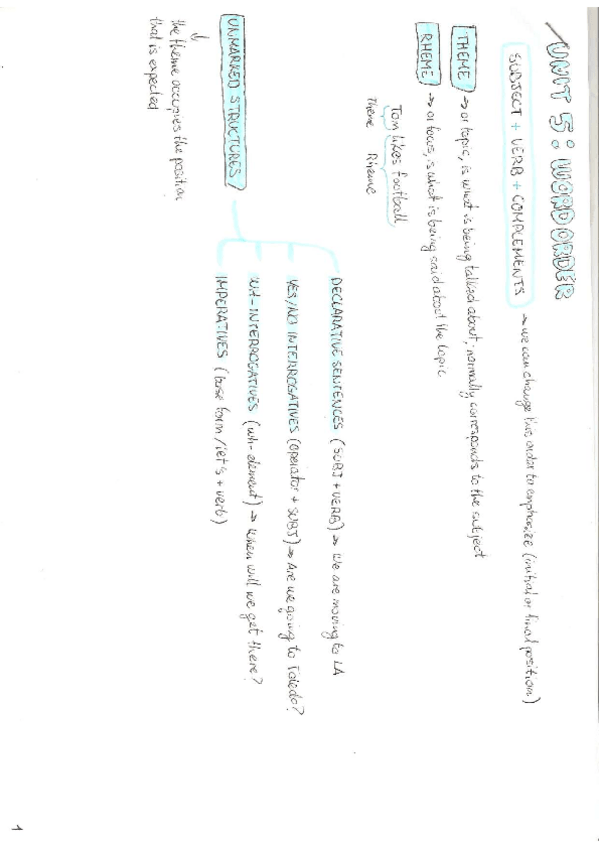 UNIT 5: WORD ORDER
SUBJECT + VERB + COMPLEMENTS → we can change this order to emphasize (initial or final position)
THEME → or topic, is what is being talked about, normally corresponds to the subject
RHEME → or focus, is what is being said about the topic
Tom likes football
Theme Rheme
DECLARATIVE SENTENCES (SUBJ + VERB) → We are moving to LA
YES/NO INTERROGATIVES (operator + SUBJ) → Are we going to Toledo?
UNMARKED STRUCTURES
WH-INTERROGATIVES (wh-element) → When will we get there?
IMPERATIVES (base form / let's + verb)
the theme occupies the position
that is expected
1